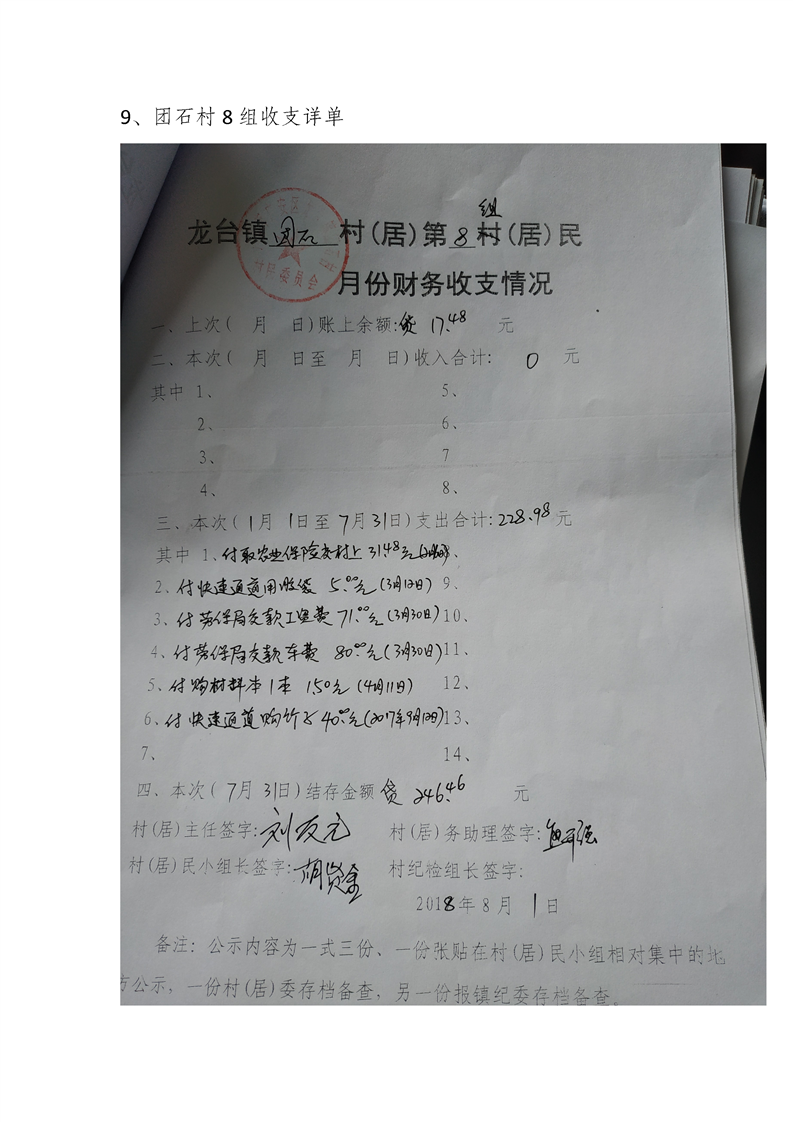 9、团石村 8 组收支详单
组
龙台镇团石村(居)第8村(居)民
村民委员会
月份财务收支情况
一、上次( 月 日)账上余额:贷 17.48 元
二、本次( 月 日至 月 日)收入合计: 0 元
其中 1、 5、
2、 6、
3、 7
4、 8、
三、本次(1月 1日至 7月31日)支出合计:228.98元
其中 1、付取农业保险交村上 31.48元
2、付快速通道用胶袋 5.00元(3月12日) 9、
3、付劳保局交款工资费 71.00元(3月30日)10、
4、付劳保局交款车费 80.00元(3月30日)11、
5、付购材料本1本 1.50元(4月11日) 12、
6、付快速通道购竹子 40.00元(2017年9月12日)13、
7、 14、
四、本次( 7月 31日)结存金额 贷 246.46 元
村(居)主任签字:刘友元 村(居)务助理签字:
村(居)民小组长签字:胡贤金 村纪检组长签字:
2018年8月 1日
备注: 公示内容为一式三份、一份张贴在村(居)民小组相对集中的地
方公示, 一份村(居)委存档备查, 另一份报镇纪委存档备查。